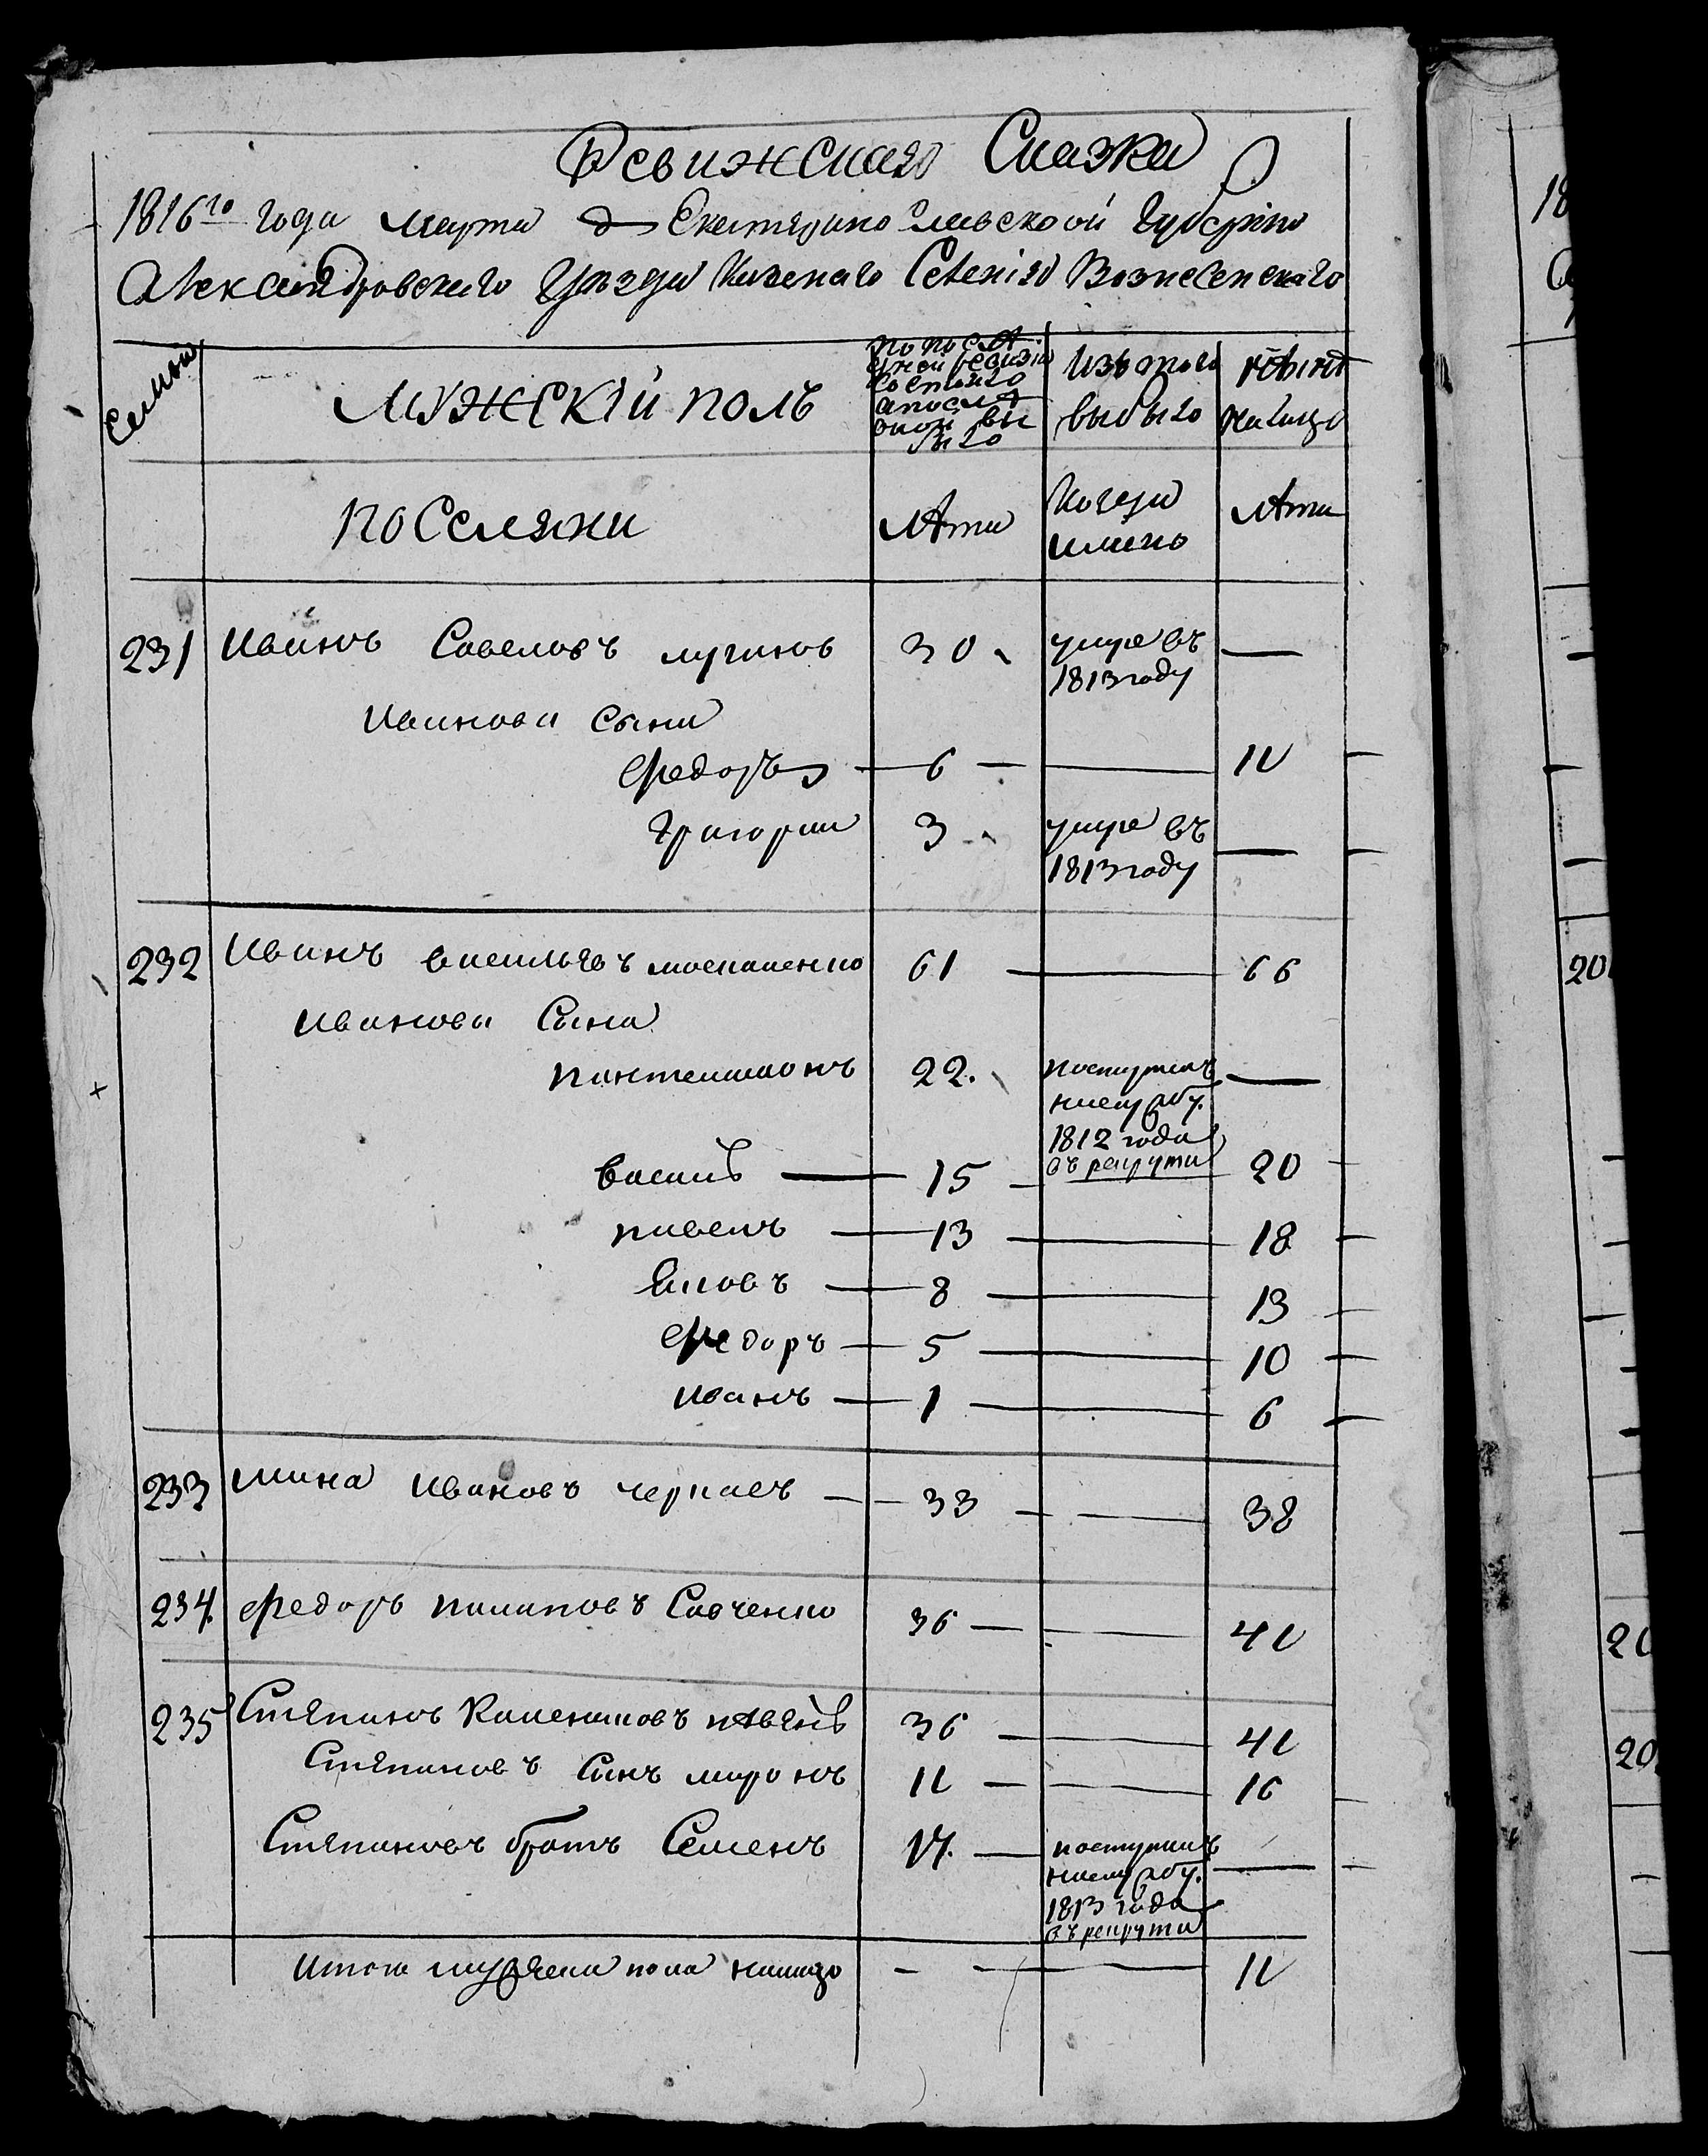 Ревижская Сказка
1816го года марта Екатеринославской Губерніи
Александровского Уѣзда Казенаго Селенія Вознесенскаго
Семьи
МУЖЕСКІЙ ПОЛЪ
по посл
ѣдней ревизіи
состояло
а послѣ
оной вы
было
Изъ того
выбыло
нынѣ
налицо
Поселяни
Лѣта
Когда
имяно
Лѣта
231 Иванъ Савеловъ лугинов 30 умре въ —
1813 году
Иванова Сына
Федоръ — 6 — — 11
Григории 3 умре въ —
1813 году
232 Иванъ васильевъ москаленко 61 — 66
Иванова Сына
пантелимонъ 22. поступилъ —
1812 года
въ рекрути
Василъ — 15 — 20
павелъ — 13 — 18
Яковъ — 8 — 13
Федоръ — 5 — 10
Иванъ — 1 — 6
233 мина Ивановъ чернаев — 33 — — 38
234. Федоръ патаповъ Савченко 36 — — 41
235 Степанъ 36 — 41
Степановъ Синъ миронъ 11 — — 16
Степановъ братъ Семенъ 17. — поступилъ —
1813 года
въ рекрути
Итого мужеска пола налицо — — 11
18
20
21
20